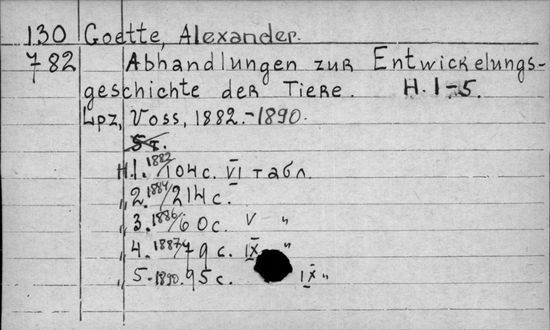 130 Goette, Alexander.
782 Abhandlungen zur Entwickelungs-
geschichte der Tiere. H. 1-5.
Lpz, Voss, 1882.-1890.
5 т.
H.1. 1882/104 с. VI табл.
„ 2. 1884/214 с.
„ 3. 1886/60 с. V „
„ 4. 1887/79 с. IX „
„ 5- 1890. 95 с. IX „